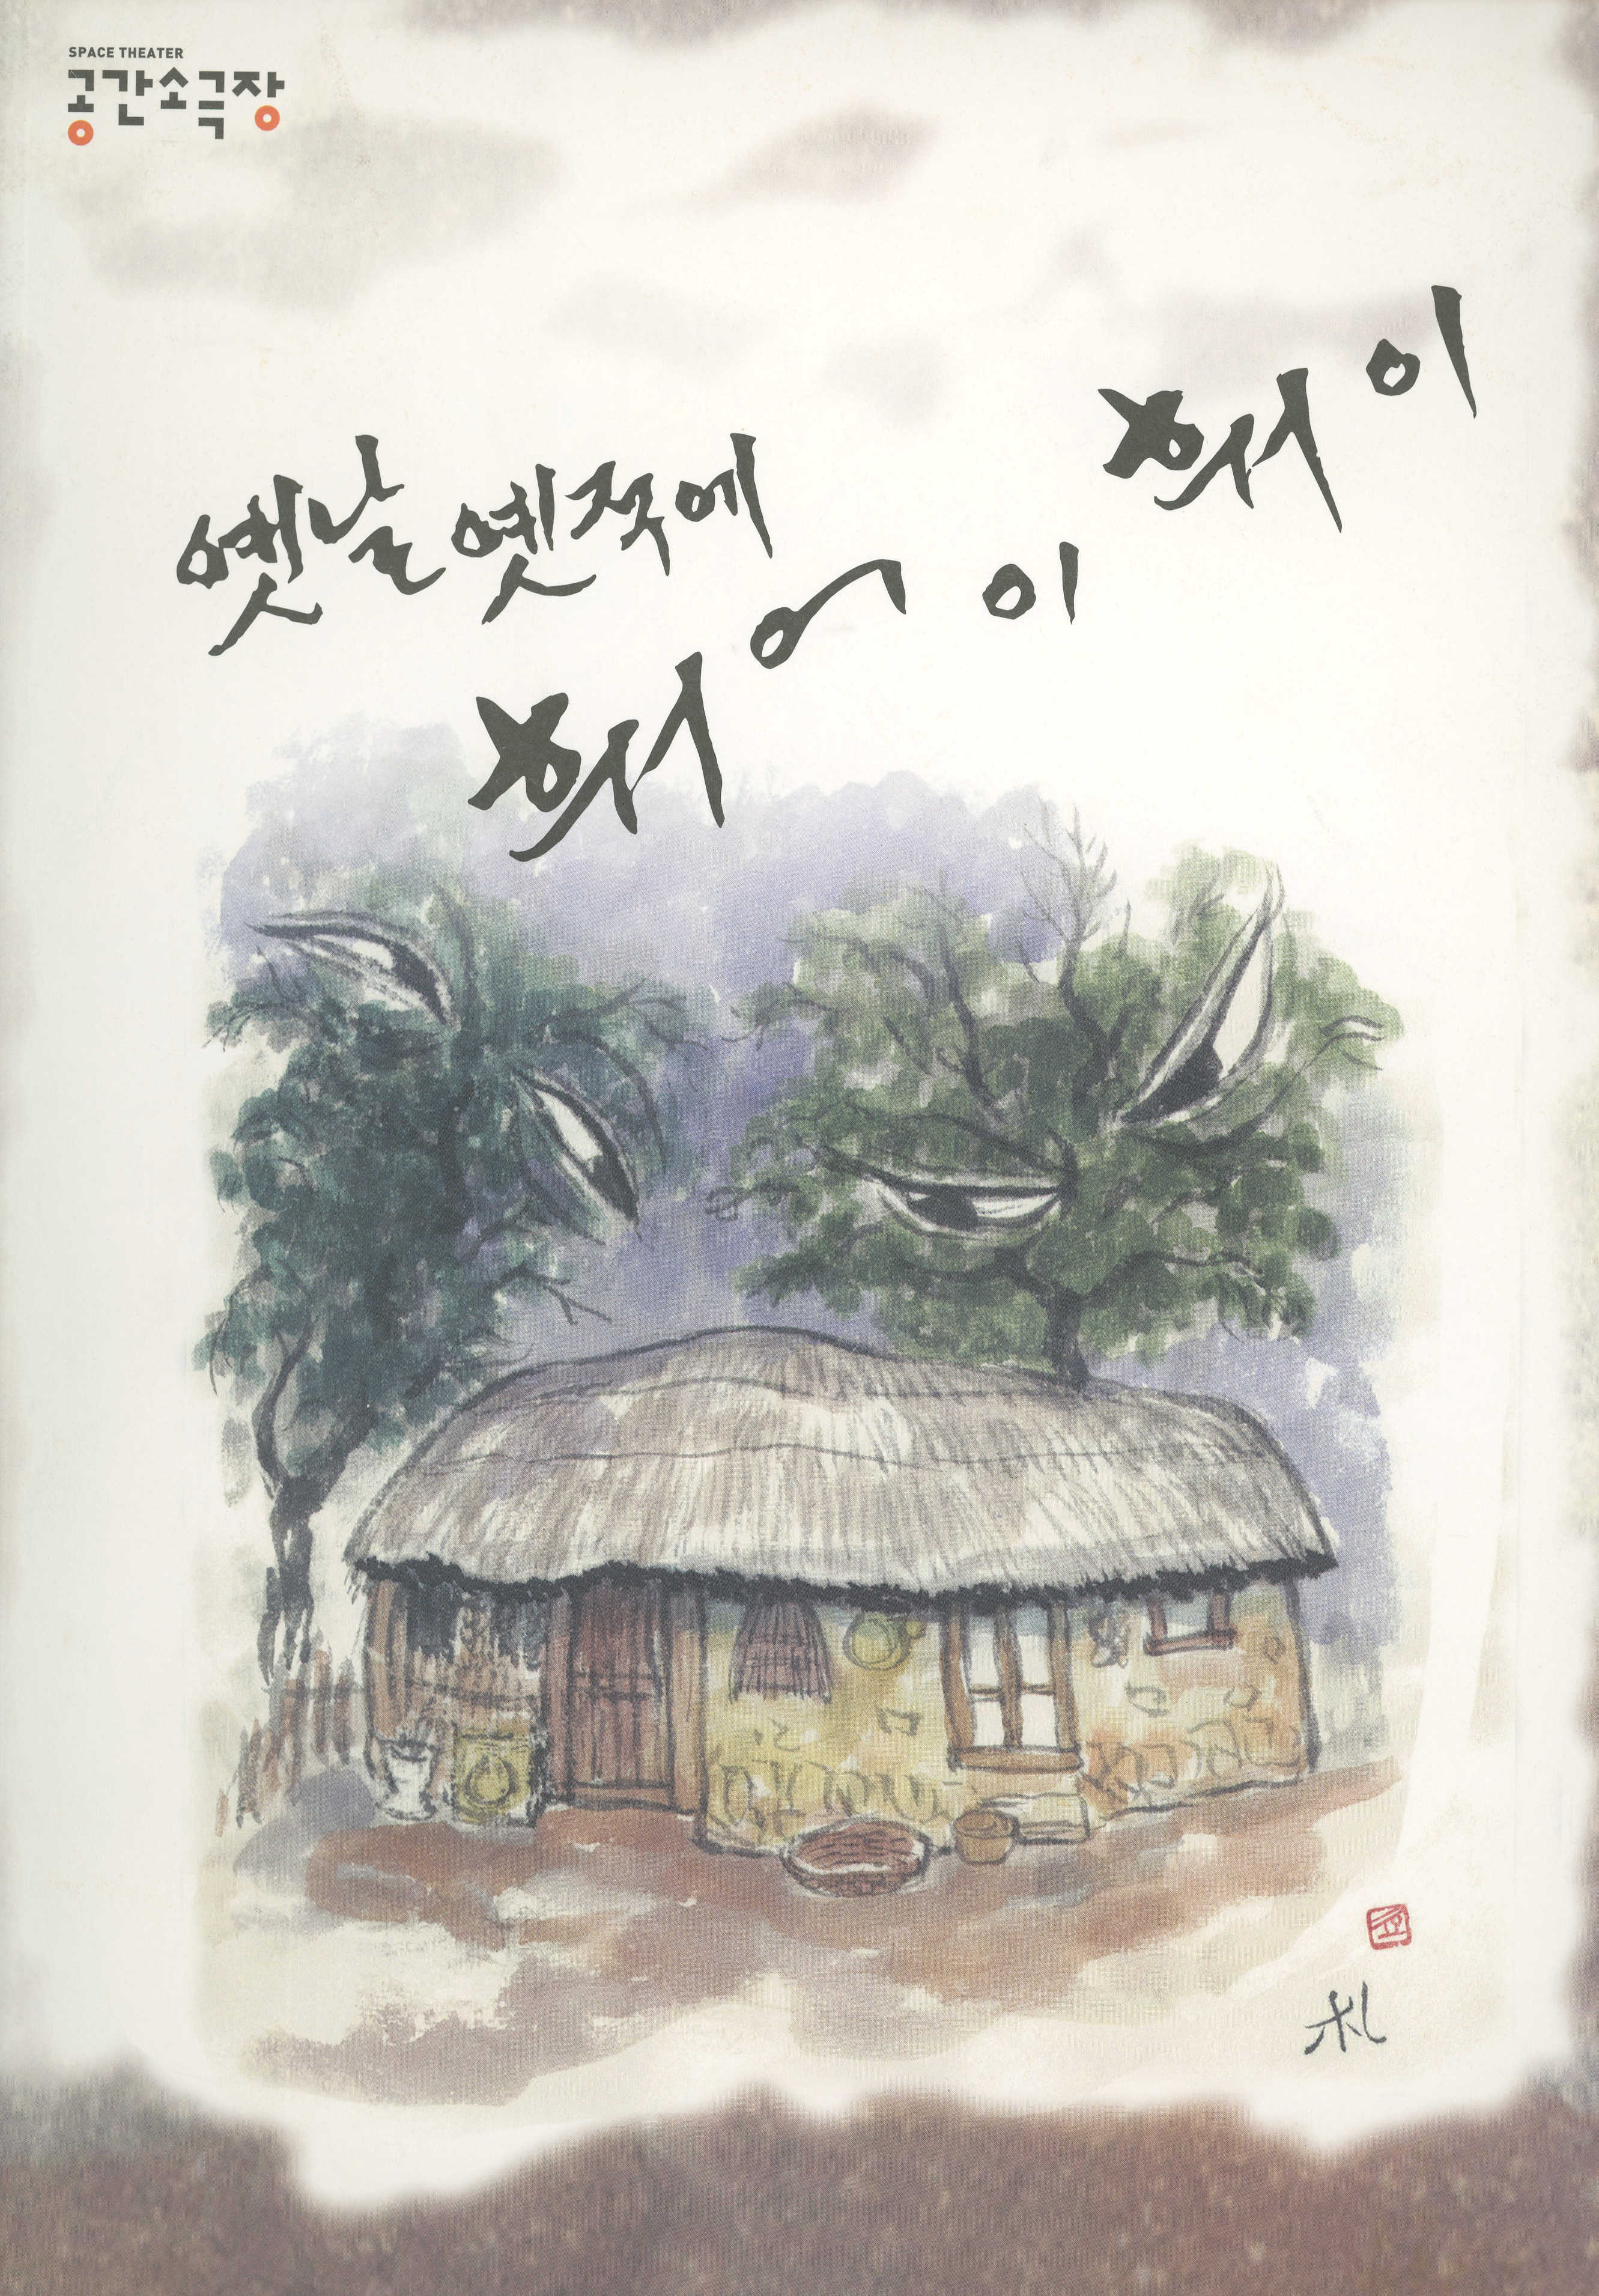 SPACE THEATER
공간소극장
옛날 옛적에
훠어이 훠이